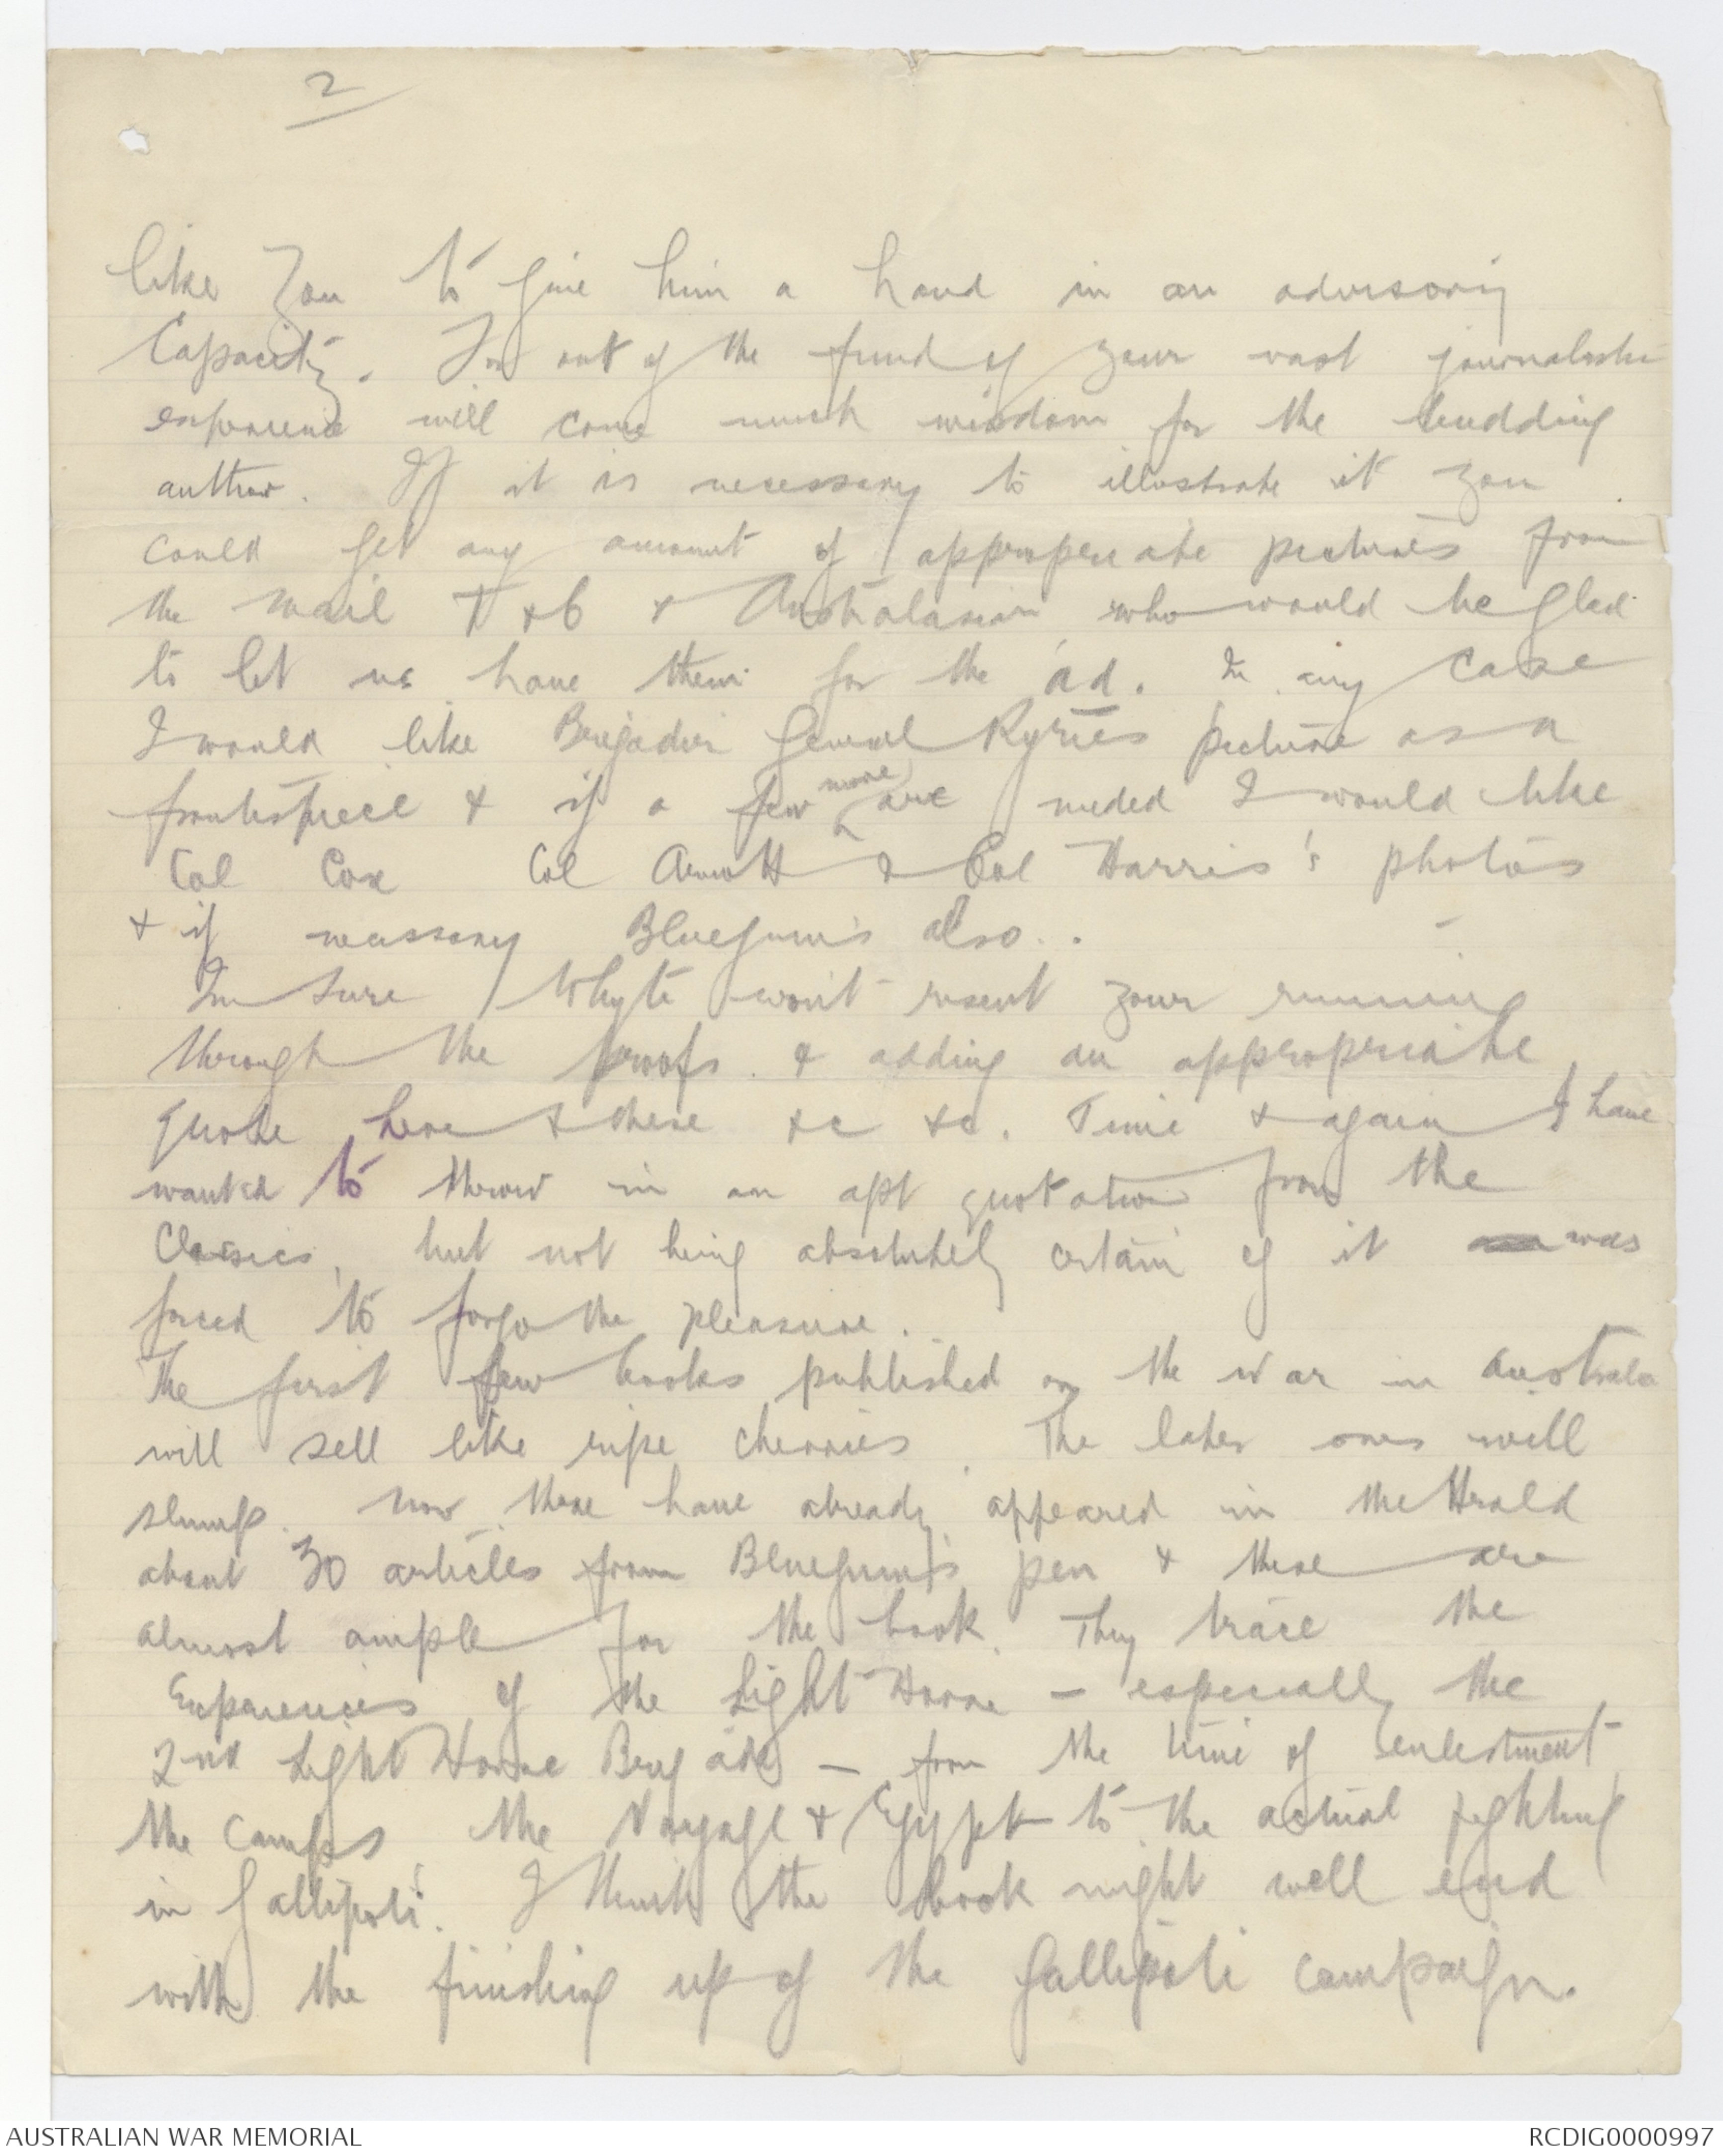 2
like you to give him a hand in an advisory
Capacity. For out of the fund of your vast journalistic
experience will come much wisdom for the budding
author. If it is necessary to illustrate it you
could get any amount of appropriate pictures from
the Mail T & C & Australasian who would be glad
to let us have them for the ad. In any case
I would like Brigadier General Ryrie's picture as a
frontispiece & if a few more are needed I would like
Col Cox Col Arnott & Col Harris's photos
& if necessary Bluegum's also..
Im sure Whyte won't resent your running
through the proofs & adding an appropriate
quote here & there &c &c. Time & again I have
wanted to throw in an apt quotation from the
Classics, but not being absolutely certain of it was
forced to forgo the pleasure.
The first few books published on the war in Australia
will sell like ripe cherries. The later ones will
slump. Now there have already appeared in the Herald
about 30 articles from Bluegum's pen & these are
almost ample for the book. They trace the
Experiences of the Light Horse - especially the
2nd Light Horse Brigade - from the time of enlistment,
the camps, the Voyage & Egypt to the actual fighting
in Gallipoli. I think the book might well end
with the finishing up of the Gallipoli campaign.
AUSTRALIAN WAR MEMORIAL
RCDIG0000997